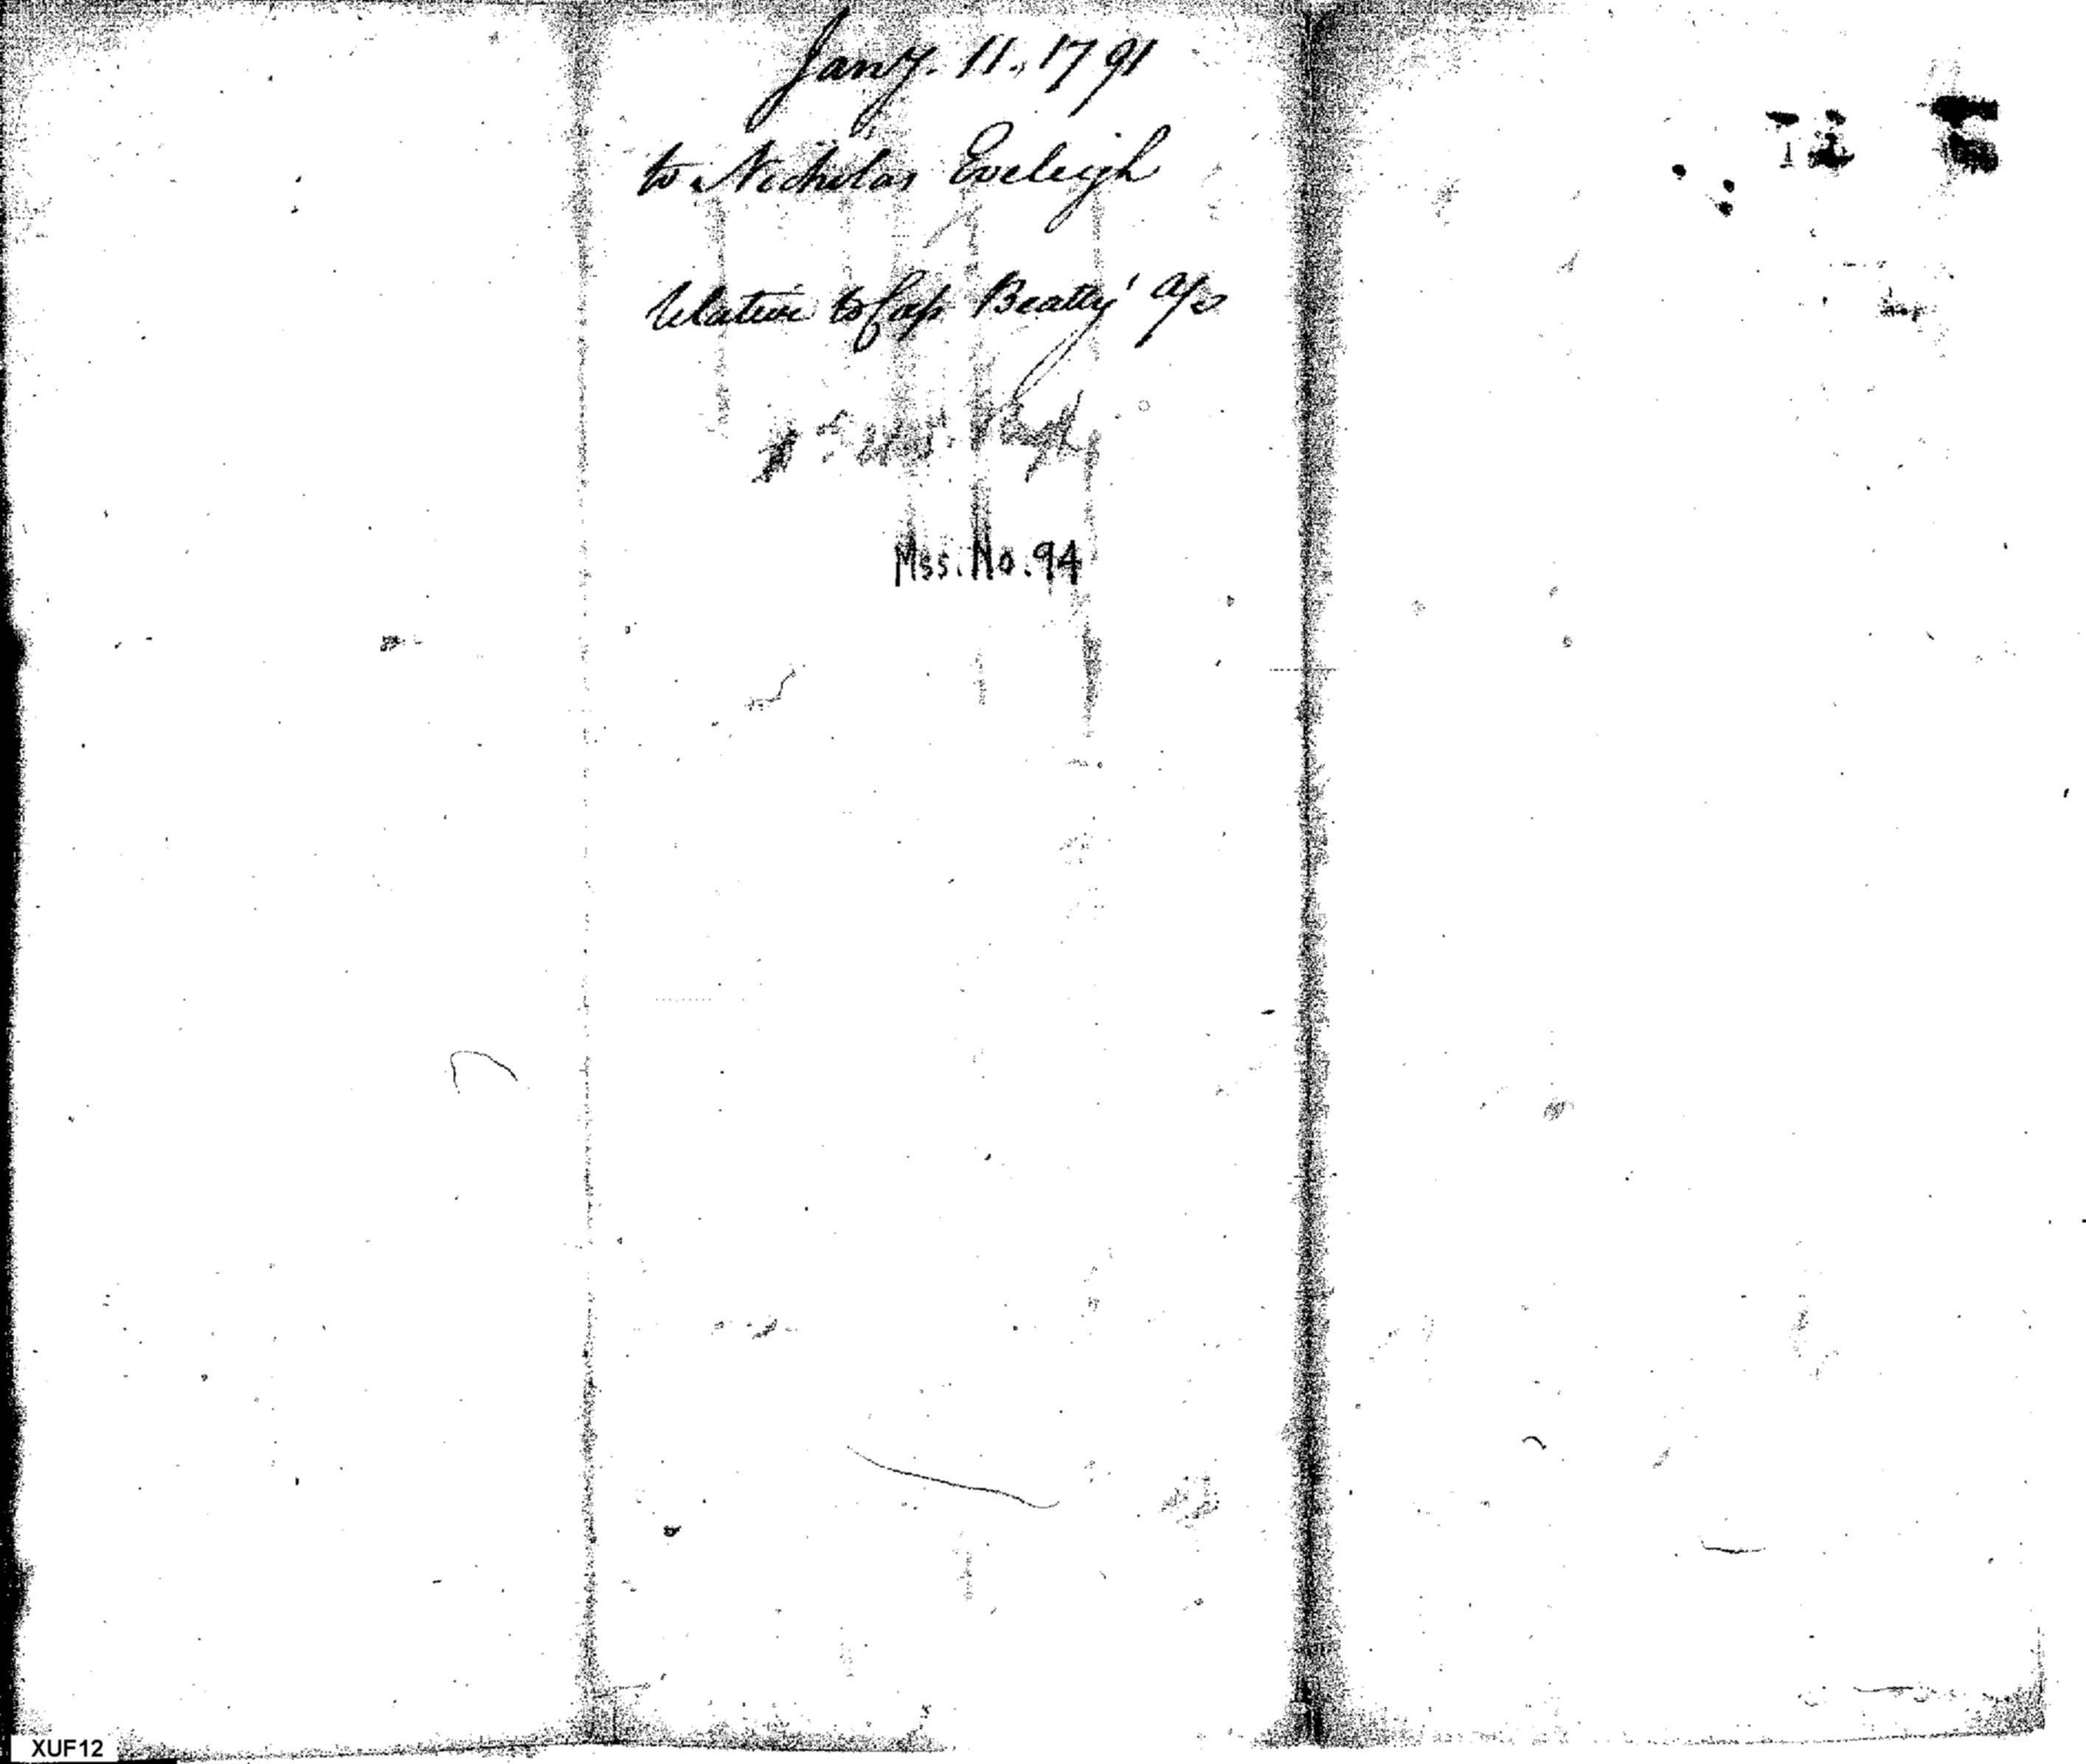 Jany. 11., 1791
to Nicholas Eveleigh
Relative to Cap Beatty' a/cs
Mss. No. 94
XUF12